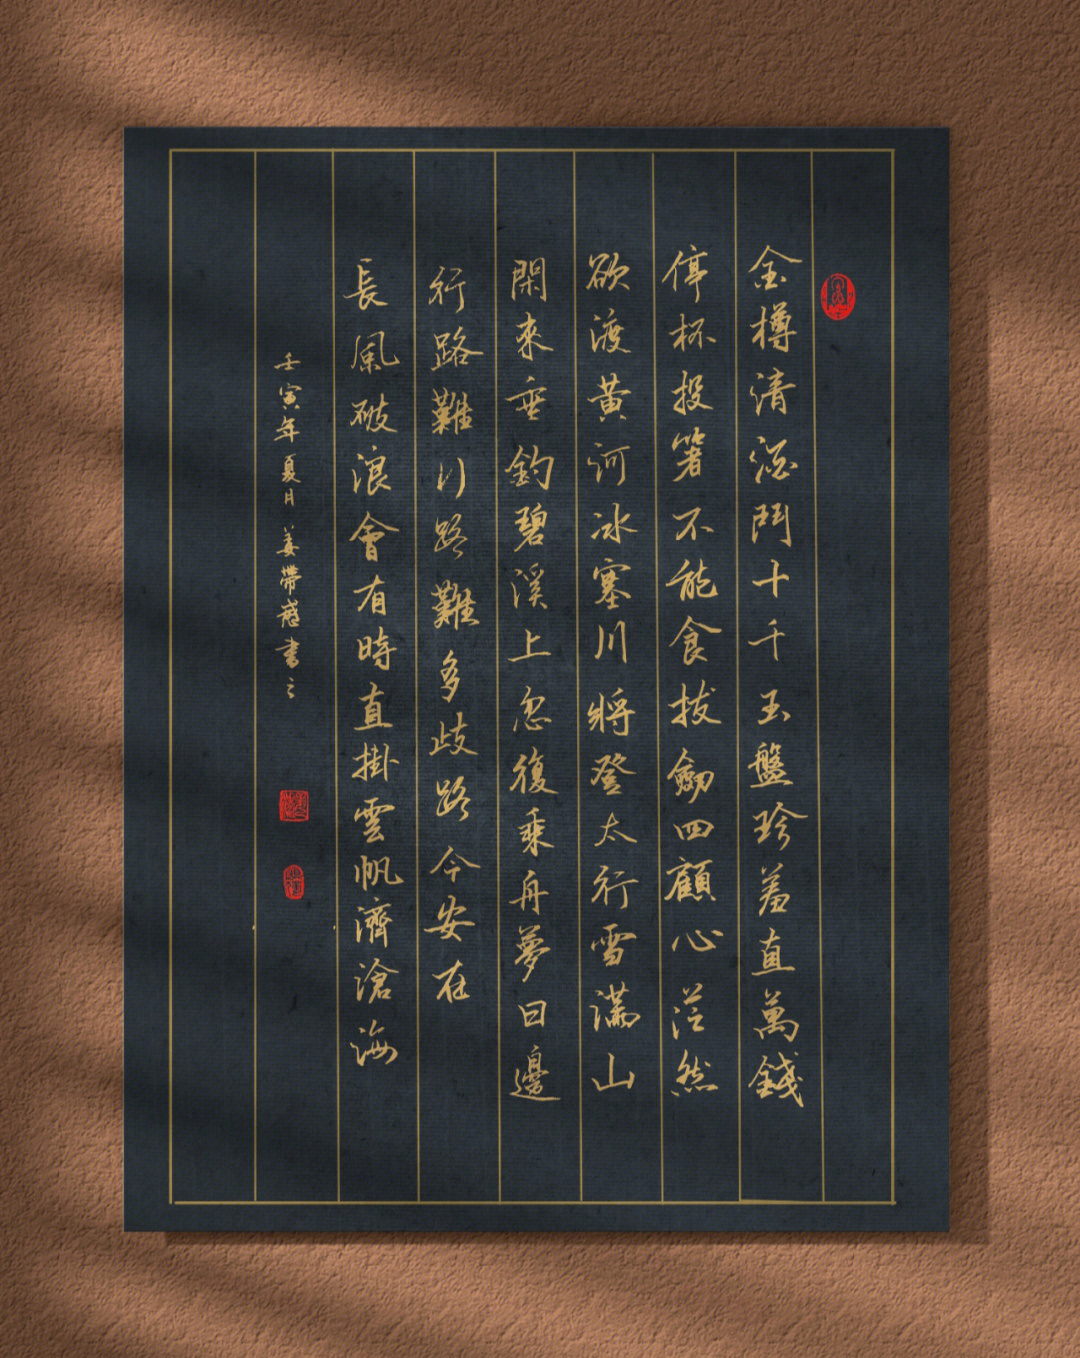 金樽清酒鬥十千玉盤珍羞直萬錢
停杯投箸不能食拔劒四顧心茫然
欲渡黃河冰塞川將登太行雪滿山
閑來垂釣碧溪上忽復乘舟夢日邊
行路難行路難多歧路今安在
長風破浪會有時直掛雲帆濟滄海
壬寅年夏月姜帶感書之